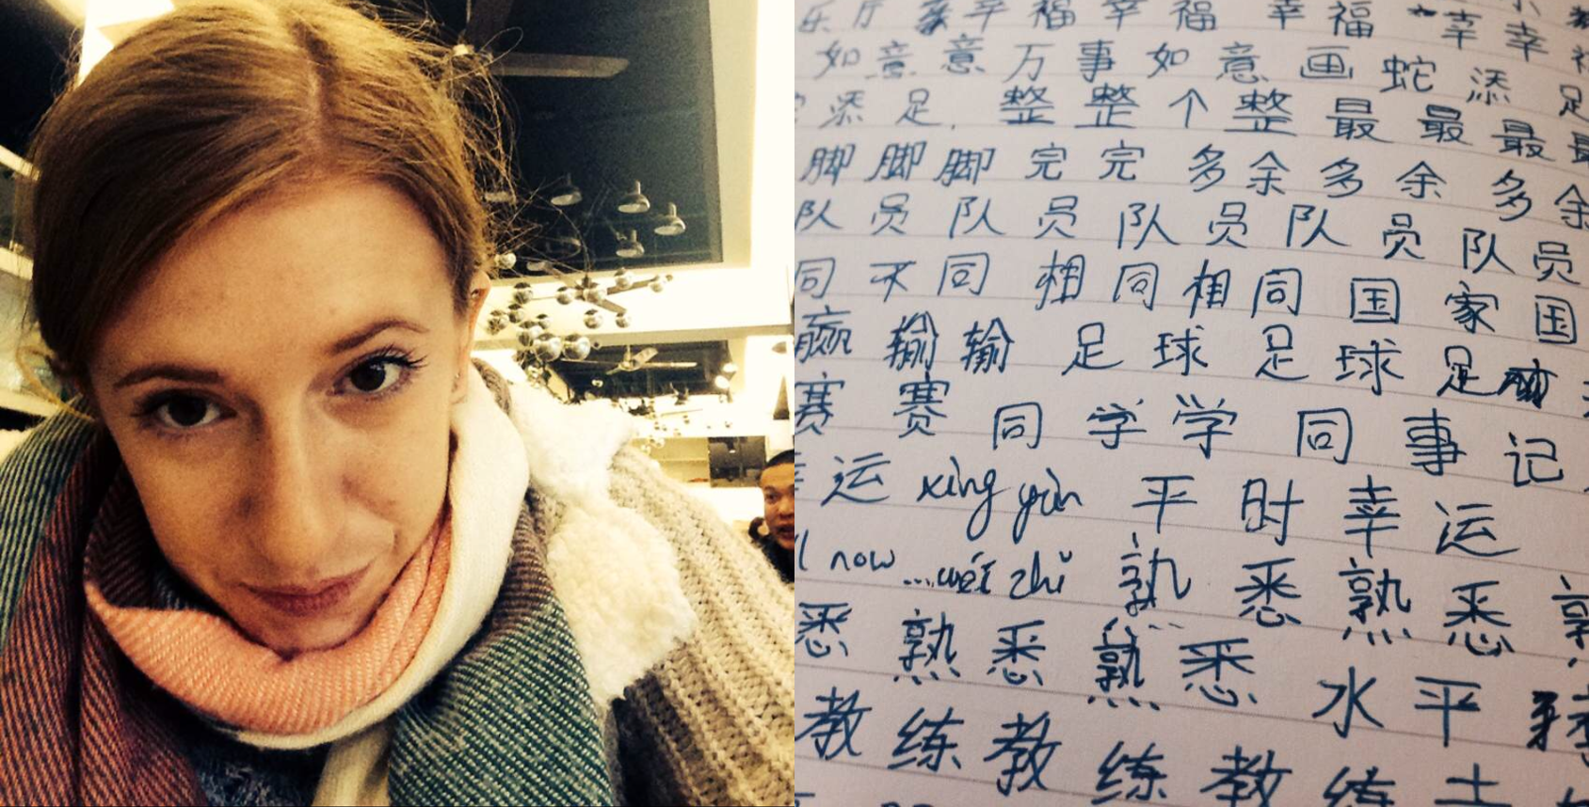 乐 厅 幸 福 幸 福 幸 福 幸 幸
如 意 意 万 事 如 意 画 蛇 添 足
添 足 . 整 整 个 整 最 最 最 最
脚 脚 脚 完 完 多 余 多 余 多 余
队 员 队 员 队 员 队 员 队 员
同 不 同 相 同 相 同 国 家 国
赢 输 输 足 球 足 球 足
赛 赛 同 学 学 同 事 记
运 xìng yùn 平 时 幸 运
now ... wèi zhǐ 熟 悉 熟 悉 熟
悉 熟 悉 熟 悉 水 平
教 练 教 练 教 练